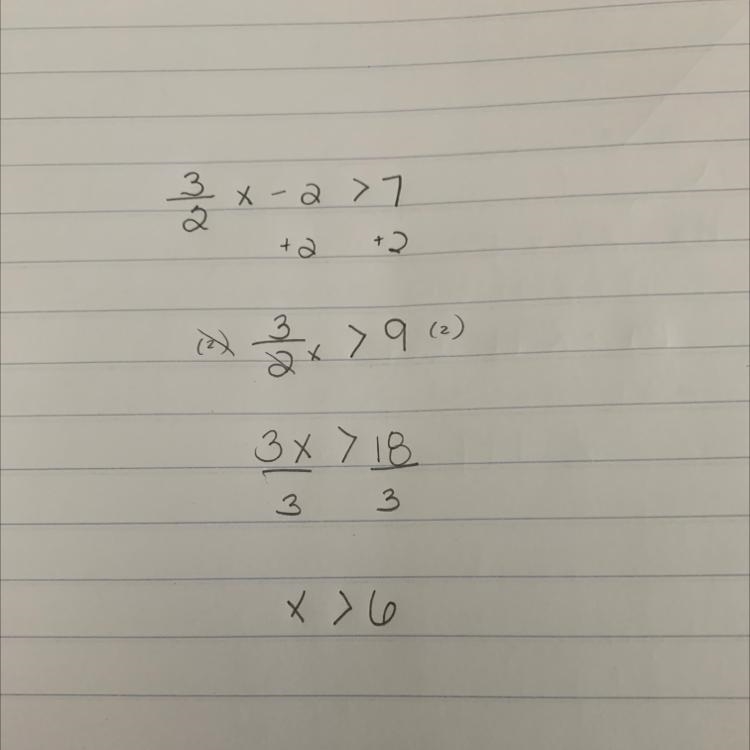 3/2 x - 2 > 7
+2 +2
(2) 3/2 x > 9 (2)
3x > 18
3 3
x > 6